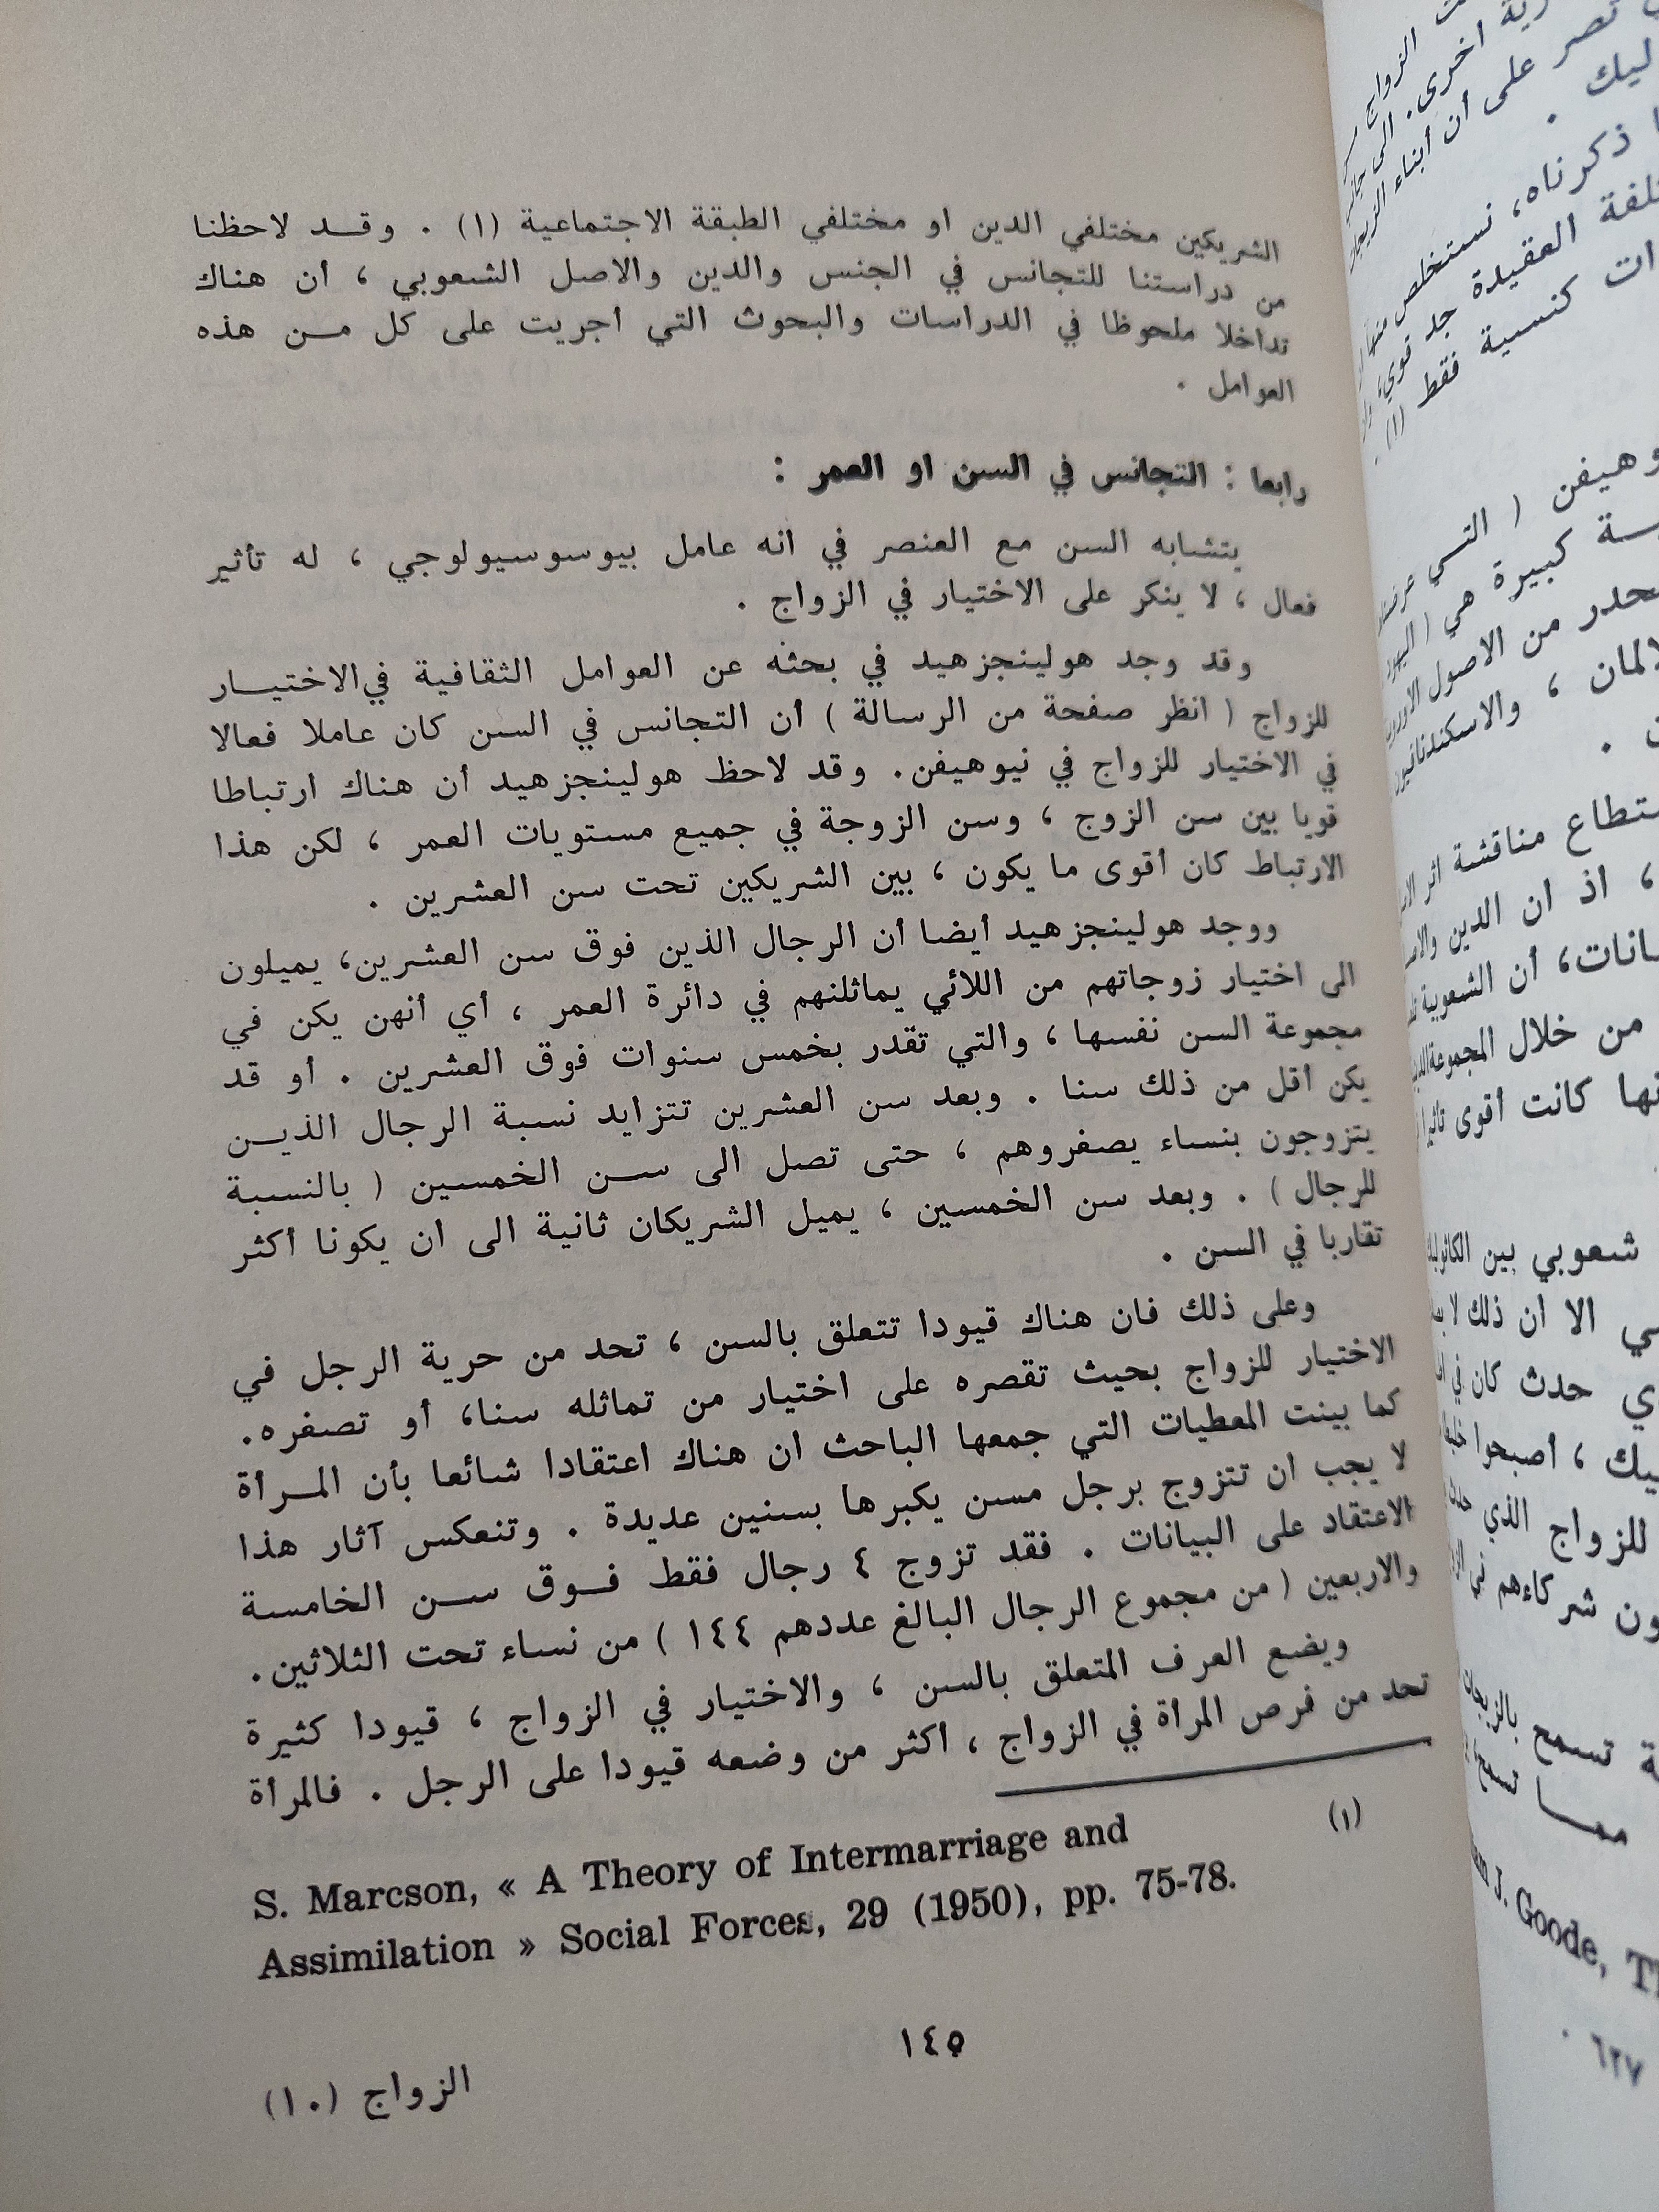 الشريكين مختلفي الدين او مختلفي الطبقة الاجتماعية (١) . وقـــد لاحظنا
من دراستنا للتجانس في الجنس والدين والاصل الشعوبي ، أن هناك
تداخلا ملحوظا في الدراسات والبحوث التي أجريت على كل مـــن هذه
العوامل .
رابعا : التجانس في السن او العمر :
يتشابه السن مع العنصر في انه عامل بيوسوسيولوجي ، له تأثير
فعال ، لا ينكر على الاختيار في الزواج .
وقد وجد هولينجزهيد في بحثه عن العوامل الثقافية في الاختيـــار
للزواج ( انظر صفحة من الرسالة ) أن التجانس في السن كان عاملا فعالا
في الاختيار للزواج في نيوهيفن. وقد لاحظ هولينجزهيد أن هناك ارتباطا
قويا بين سن الزوج ، وسن الزوجة في جميع مستويات العمر ، لكن هذا
الارتباط كان أقوى ما يكون ، بين الشريكين تحت سن العشرين .
ووجد هولينجزهيد أيضا أن الرجال الذين فوق سن العشرين، يميلون
الى اختيار زوجاتهم من اللائي يماثلنهم في دائرة العمر ، أي أنهن يكن في
مجموعة السن نفسها ، والتي تقدر بخمس سنوات فوق العشرين . أو قد
يكن أقل من ذلك سنا . وبعد سن العشرين تتزايد نسبة الرجال الذيـــن
يتزوجون بنساء يصغروهم ، حتى تصل الى ســـن الخمسين ( بالنسبة
للرجال ) . وبعد سن الخمسين ، يميل الشريكان ثانية الى ان يكونا أكثر
تقاربا في السن .
وعلى ذلك فان هناك قيودا تتعلق بالسن ، تحد من حرية الرجل في
الاختيار للزواج بحيث تقصره على اختيار من تماثله سنا، أو تصغره.
كما بينت المعطيات التي جمعها الباحث ان هناك اعتقادا شائعا بأن المـــرأة
لا يجب ان تتزوج برجل مسن يكبرها بسنين عديدة . وتنعكس آثار هذا
الاعتقاد على البيانات . فقد تزوج ٤ رجال فقط فـــوق ســـن الخامسة
والاربعين ( من مجموع الرجال البالغ عددهم ١٤٤ ) من نساء تحت الثلاثين.
ويضع العرف المتعلق بالسن ، والاختيار في الزواج ، قيودا كثيرة
تحد من فرص المرأة في الزواج ، أكثر من وضعه قيودا على الرجل . فالمرأة
(١)
S. Marcson, « A Theory of Intermarriage and
Assimilation » Social Forces, 29 (1950), pp. 75-78.
١٤٥
الزواج (١٠)
الزواج
اخرى. الى
تصر على أن أبناء
ليك .
ذكرناه، نستخلص
العقيدة جد قوي،
كنسية فقط (١) .
هيفن ( التـــي
كبيرة هي (
من الاصول
، والاسكندنافيون
مناقشة اثر
، اذ ان الدين
أن الشعوبية
من خلال
كانت أقوى
شعوبي بين
الا ان ذلك لا
حدث كان في
، أصبحوا
للزواج الذي
شركاءهم في
تسمح
ممـــا تسمح
J. Goode,
٦٢٧ .